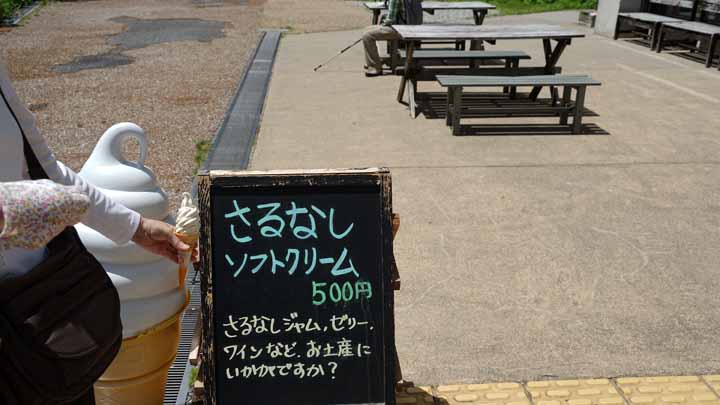 さるなし
ソフトクリーム
500円
さるなしジャム、ゼリー、
ワインなど、お土産に
いかがですか?